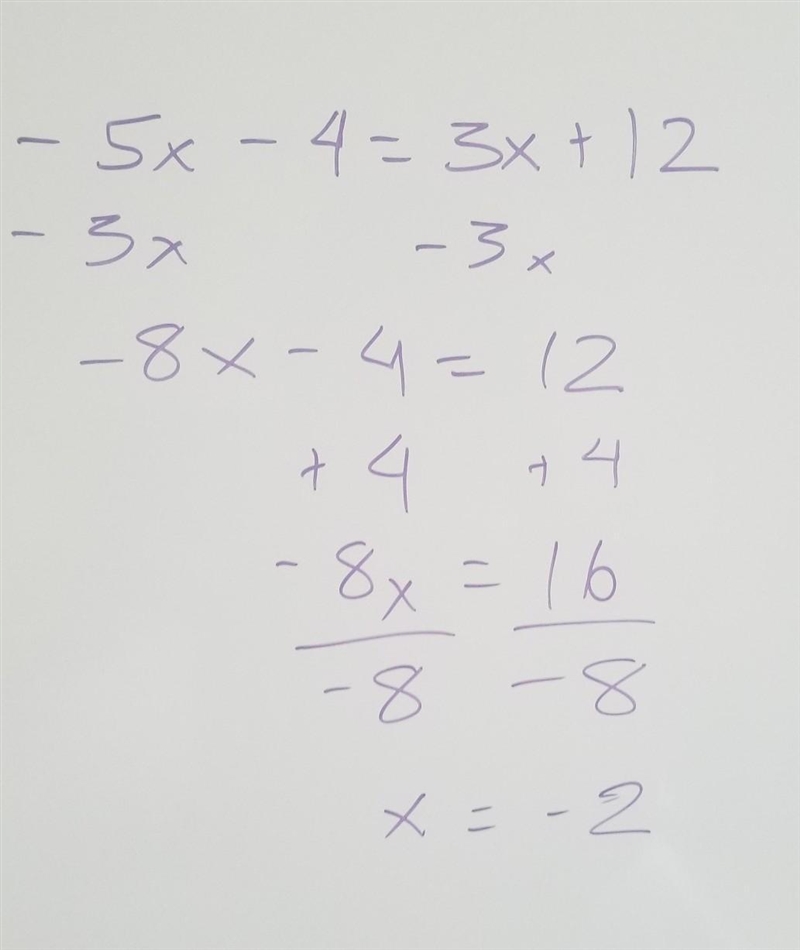 - 5x - 4 = 3x + 12
- 3x - 3x
- 8x - 4 = 12
+ 4 + 4
- 8x = 16
- 8 - 8
x = - 2